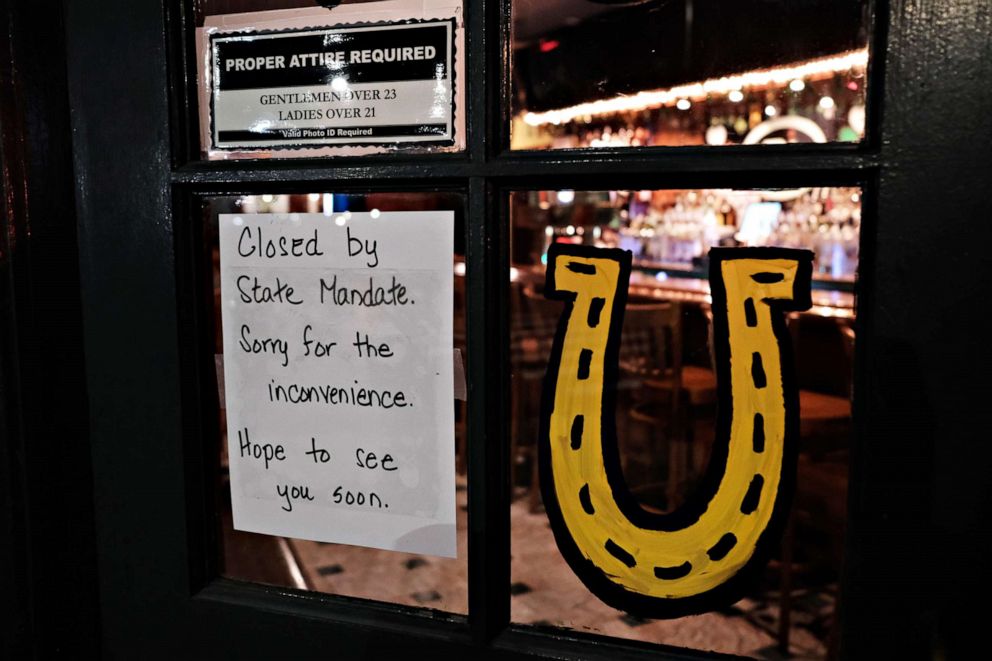 PROPER ATTIRE REQUIRED
GENTLEMEN OVER 23
LADIES OVER 21
Valid Photo ID Required
Closed by
State Mandate.
Sorry for the
inconvenience.
Hope to see
you soon.